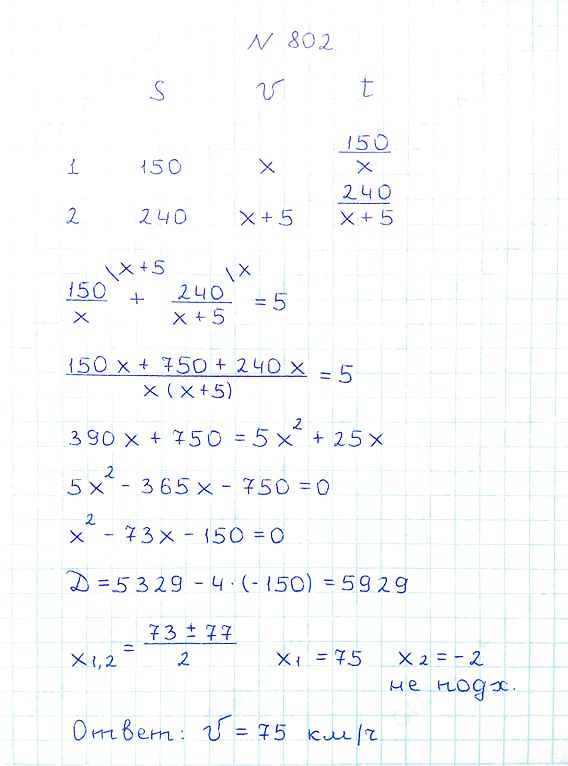 N 802
S v t
1 150 x 150/x
2 240 x+5 240/(x+5)
150/x \x+5 + 240/(x+5) \x = 5
(150x + 750 + 240x)/(x(x+5)) = 5
390x + 750 = 5x² + 25x
5x² - 365x - 750 = 0
x² - 73x - 150 = 0
D = 5329 - 4·(-150) = 5929
x1,2 = (73 ± 77)/2 x1 = 75 x2 = -2
не подх.
Ответ: v = 75 км/ч